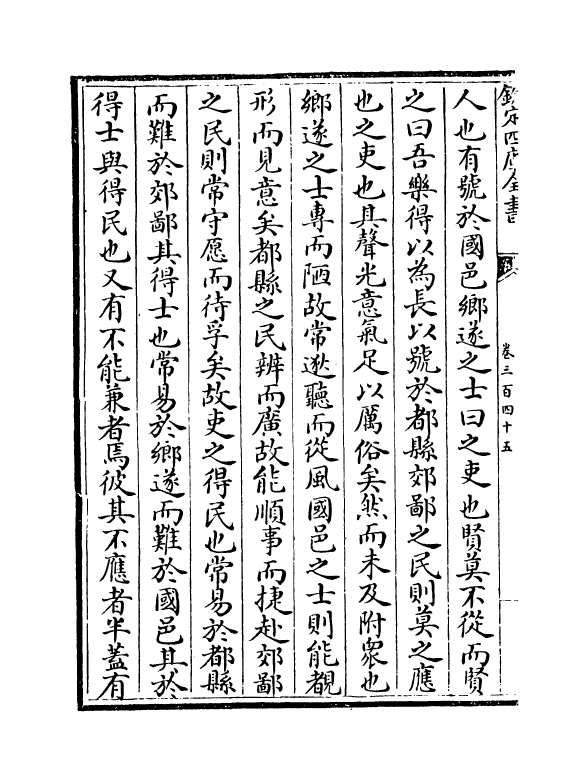 欽定四庫全書
卷三百四十五
人也有號於國邑鄉遂之士曰之吏也賢莫不從而賢
之曰吾樂得以為長以號於都縣郊鄙之民則莫之應
也之吏也其聲光意氣足以厲俗矣然而未及附衆也
鄉遂之士專而陋故常逖聽而從風國邑之士則能覩
形而見意矣都縣之民辨而廣故能順事而捷赴郊鄙
之民則常守愿而待孚矣故吏之得民也常易於都縣
而難於郊鄙其得士也常易於鄉遂而難於國邑其於
得士與得民也又有不能兼者焉彼其不應者半蓋有